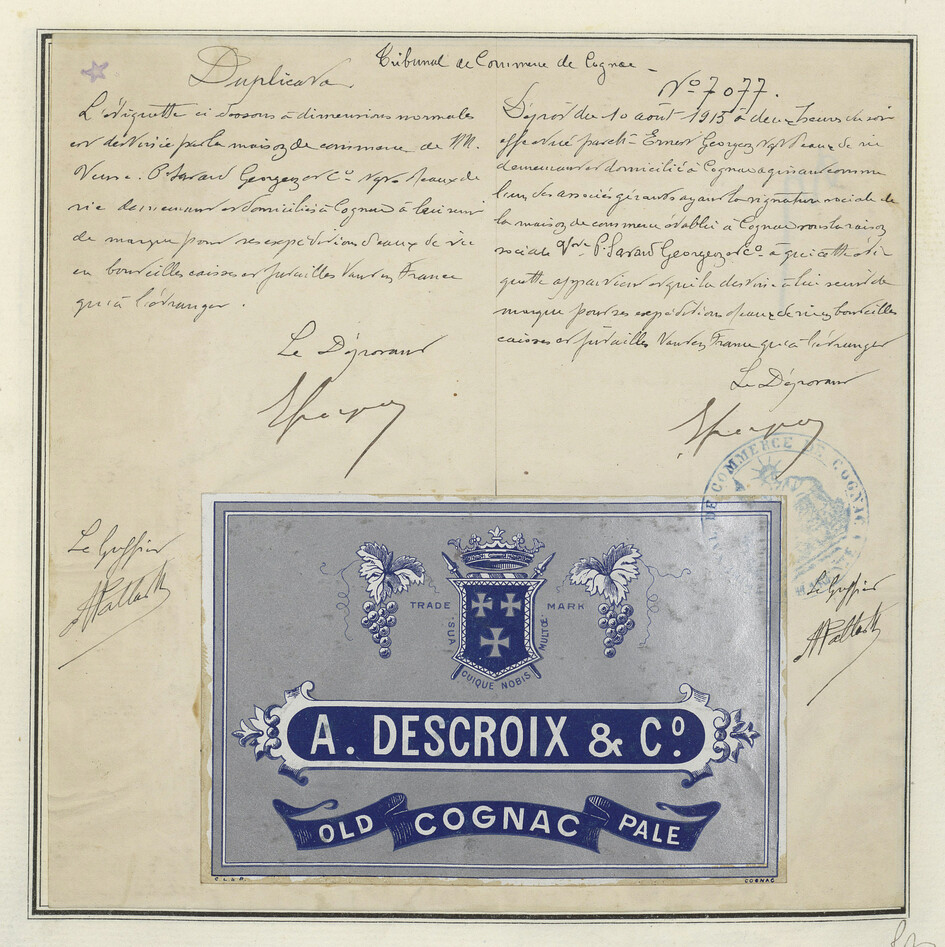 Tribunal de Commerce de Cognac
Duplicata.
L'étiquette ci dessous à dimensions normales
est destinée par la maison de commerce de MM.
Veuve P. Savard Georgeon et Co. Ngts d'eaux de
vie demeurant et domiciliés à Cognac à lui servir
de marque pour ses expéditions d'eaux de vie
en bouteilles caisses et futailles tant en France
qu'à l'étranger.
Le Déposant
No 7077.
Dépôt du 10 août 1915 à deux heures du soir
effectué par Ernest Georgeon Ngt d'eaux de vie
demeurant et domicilié à Cognac agissant comme
l'un des associés gérants ayant la signature sociale de
la maison de commerce établie à Cognac sous la raison
sociale Vve P. Savard Georgeon et Co. à qui cette éti-
quette appartient et qui la destine à lui servir de
marque pour ses expéditions d'eaux de vie en bouteilles
caisses et futailles tant en France qu'à l'étranger
Le Déposant
DE COMMERCE DE COGNAC
Le Greffier
Le Greffier
TRADE MARK
SUA
MULTŒ
CUIQUE NOBIS
A. DESCROIX & Co.
OLD COGNAC PALE
COGNAC